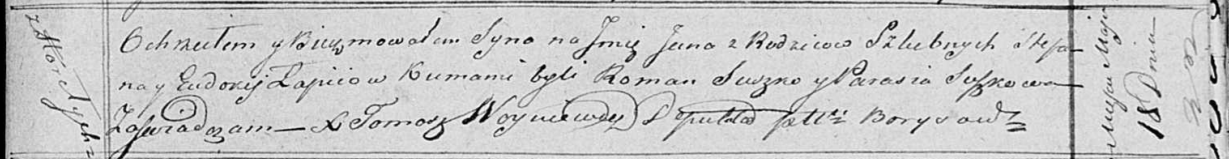 z Hore Tych
Ochrzciłem y Bierzmowałem Syna na Jmię Jana z Rodzicow Szlubnych Stepa-
na y Eudokij Łapiciow Kumami byli Roman Suszko y Parasia Suszkowa
Zaświadczam — X Tomasz Woyniewicz Deputat
Miesiąca Maja
18 Dnia